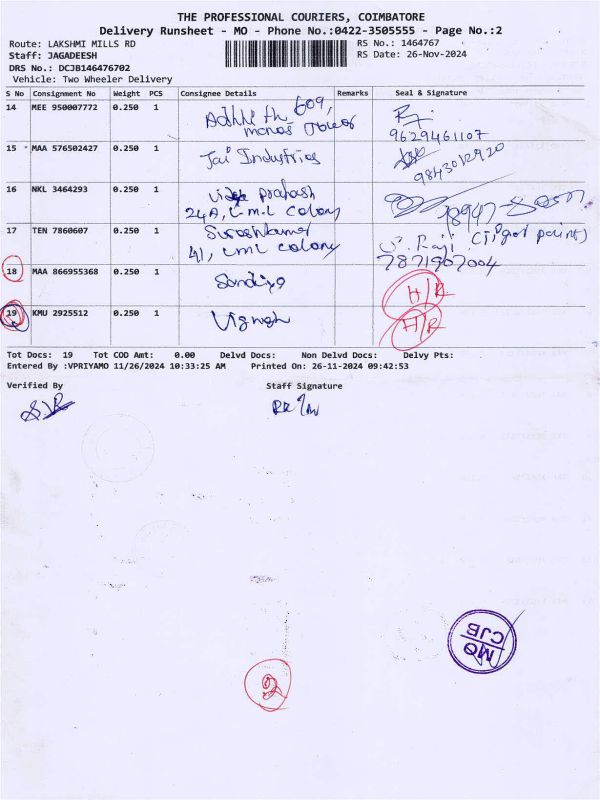 THE PROFESSIONAL COURIERS, COIMBATORE
Delivery Runsheet - MO - Phone No.:0422-3505555 - Page No.:2
Route: LAKSHMI MILLS RD RS No.: 1464767
Staff: JAGADEESH RS Date: 26-Nov-2024
DRS No.: DCJB146476702
Vehicle: Two Wheeler Delivery
S No Consignment No Weight PCS Consignee Details Remarks Seal & Signature
14 MEE 950007772 0.250 1 609,
9629461107
15 MAA 576502427 0.250 1 Jai Industries
9843012920
16 NKL 3464293 0.250 1 prakash
24A, L.M.L colony
17 TEN 7860607 0.250 1
41, LML colony
7871967004
18 MAA 866955368 0.250 1 Sandiya H/R
19 KMU 2925512 0.250 1 Vignesh H/R
Tot Docs: 19 Tot COD Amt: 0.00 Delvd Docs: Non Delvd Docs: Delvy Pts:
Entered By :VPRIYAMO 11/26/2024 10:33:25 AM Printed On: 26-11-2024 09:42:53
Verified By Staff Signature
MO
CJB
2